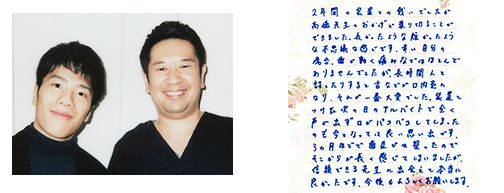 ２年間の装置との戦いでしたが
高橋先生のおかげで乗り切ることが
できました。長かったような短かったよう
な不思議な感じです。幸い自分の
場合、歯が動く痛みなどはほとんど
ありませんでしたが、長時間人と
話したりすると舌などが口内炎に
なり、それが一番大変でした。装置を
つけた次の日のアルバイトで全く
声が出ず口がパコパコしてしまった
のも今となっては良い思い出です。
３の月ほどで 歯並びは整ったので
そこからが長く感じてしまいましたが、
信頼できる先生に出会えて本当に
良かったです。今後もよろしくお願いします。